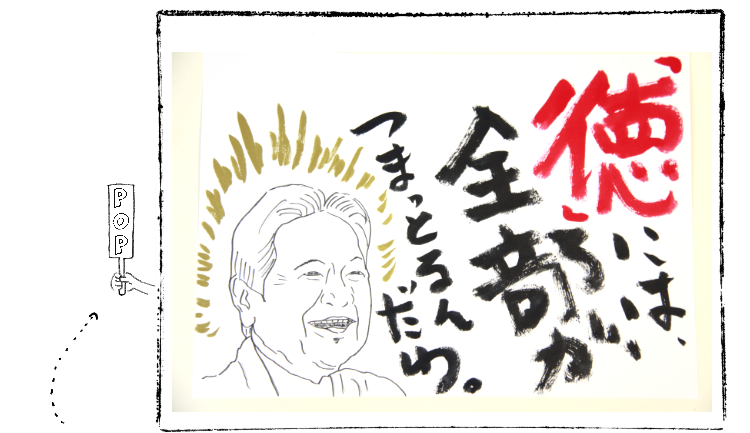 POP
徳には、
全部が
つまっとるんだわ。